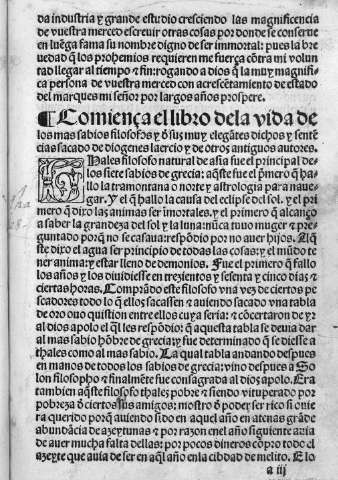 da industria y grande estudio cresciendo las magnificencia
de vuestra merced escreuir otras cosas por donde se conserue
en luēga fama su nombre digno de ser immortal: pues la bre
uedad q̄ los prohemios requieren me fuerça cōtra mi volun
tad llegar al tiempo ⁊ fin: rogando a dios q̄ la muy magnifi
ca persona de vuestra merced con acrescētamiento de estado
del marques mi señor por largos años prospere.
¶ Comiença el libro dela vida de
los mas sabios filosofos y d̄ sus muy elegātes dichos y sentē
cias sacado de diogenes laercio y de otros antiguos autores.
Thales filosofo natural de asia fue el principal de-
los siete sabios de grecia: aq̄ste fue el p̄mero q̄ ha-
llo la tramontana o norte y astrologia para naue-
gar. Y el q̄ hallo la causa del eclipse del sol. y el pri
mero q̄ dixo las animas ser īmortales. y el primero q̄ alcanço
a saber la grandeza del sol y la luna: nūca tuuo muger ⁊ pre
guntado porq̄ no se casaua: respōdio por no auer hijos. Aq̄
ste dixo el agua ser principio de todas las cosas: y el mūdo te
ner anima: y estar lleno de demonios. Fue el primero q̄ fallo
los años y los diuidiesse en trezientos y sesenta y cinco dias ⁊
ciertas horas. Comprādo este filosofo vna vez de ciertos pe
scadores todo lo q̄ ellos sacassen ⁊ auiendo sacado vna tabla
de oro ouo quistion entre ellos cuya seria: ⁊ cōcertaron de yr
al dios apolo el q̄l les respōdio: q̄ aquesta tabla se deuia dar
al mas sabio hōbre de grecia: y fue determinado q̄ se diesse a
thales como al mas sabio. La qual tabla andando despues
en manos de todos los sabios de grecia: vino despues a So
lon filosopho ⁊ finalmēte fue consagrada al dios apolo. Era
tambien aq̄ste filosofo thale: pobre ⁊ siendo vituperado por
pobreza d̄ ciertos sus amigos: mostro d̄ poder ser rico si ouie
ra querido porq̄ auiendo sido en aquel año en atenas grāde
abundācia de azeytunas ⁊ por razon q̄ nel año siguiente auia
de auer mucha falta dellas: por pocos dineros cōpro todo el
azeyte que auia de ser en aq̄l año en la cibdad de melito. E lo
a iij